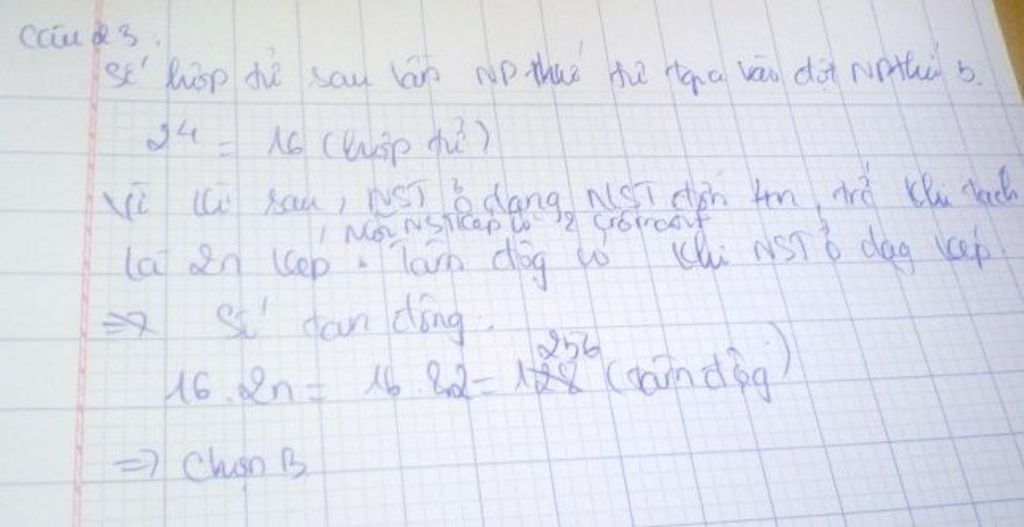 Câu 23.
Số hợp tử sau lần NP thứ tư tạo vào đợt NP thứ 5.
2⁴ = 16 (hợp tử)
Vì kì sau, NST ở dạng NST đơn 4n, trở khi tách
, mỗi NST kép có 2 crômatit
là 2n kép. Tâm động có khi NST ở dạg kép
=> Số tâm động.
256
16.2n = 16.8.2 = 128 (tâm động)
=> Chọn B